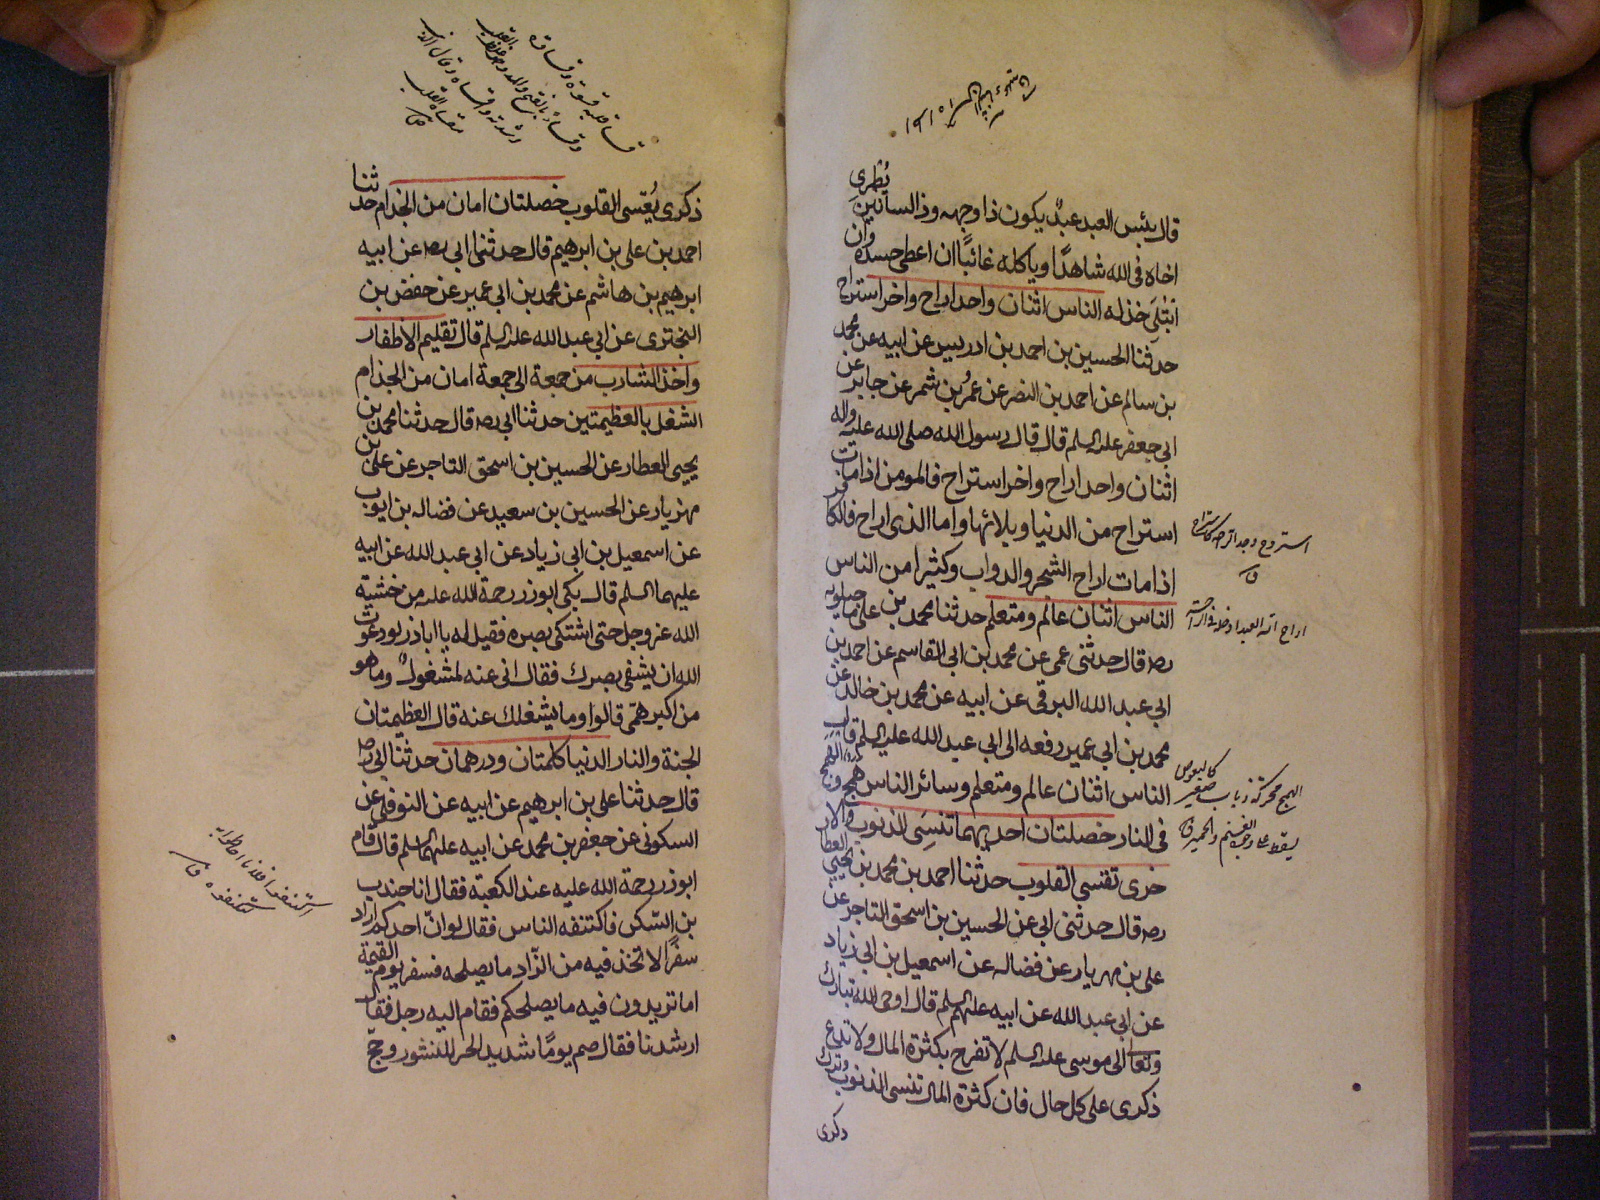 قال بئس العبد عبد يكون ذا وجهه وذا لسانين يُطرى
اخاه فى الله شاهدًا وياكله غائبًا ان اعطى حسده وان
ابتلى خذله الناس اثنان واحد اراح واخر استراح
حدثنا الحسين بن احمد بن ادريس عن ابيه عن محمد
بن سالم عن احمد بن النضر عن عمرُ بن شمر عن جابر عن
ابى جعفر عليه السلم قال قال رسول الله صلى الله عليه واله
اثنان واحد اراح واخر استراح فالمومن اذا مات
استراح من الدنيا وبلائها واما الذى اراح فالكافر
اذا مات اراح الشجر والدواب وكثيرا من الناس
الناس اثنان عالم ومتعلم حدثنا محمد بن على ماجيلويه
ره قال حدثنى عمى عن محمد بن ابى القاسم عن احمد بن
ابى عبد الله البرقى عن ابيه عن محمد بن خالد عن
محمد بن ابى عمير رفعه الى ابى عبد الله عليه السلم قال
الناس اثنان عالم ومتعلم وسائر الناس همج والهمج
فى النار خصلتان احديهما تنسى الذنوب والا
خرى تقسى القلوب حدثنا احمد بن محمد بن يحيى العطار
ره قال حدثنى ابى عن الحسين بن اسحق التاجر عن
على بن مهريار عن فضاله عن اسمعيل بن ابى زياد
عن ابى عبد الله عن ابيه عليهم السلم قال اوحى الله تبارك
وتعا الى موسى عليه السلم لا تفرح بكثرة المال ولا تدع
ذكرى على كل حال فان كثرة المال تنسى الذنوب وترك
ذكرى
استروح وجد الراحة كاستراح
ق
اراح الله العبد ادخله فى الراحة
الهمج محركة ذباب صغير كالبعوض
يسقط على وجوه الغنم والحمير ق
قسا قلبه قسوة وقساوة
ذكرى يُقسى القلوب خصلتان امان من الجذام حدثنا
احمد بن على بن ابرهيم قال حدثنى ابى ره عن ابيه
ابرهيم بن هاشم عن محمد بن ابى عمير عن حفص بن
البخترى عن ابى عبد الله عليه السلم قال تقليم الاظفار
واخذ الشارب من جمعة الى جمعة امان من الجذام
الشغل بالعظيمتين حدثنا ابى ره قال حدثنا محمد بن
يحيى العطار عن الحسين بن اسحق التاجر عن على بن
مهزيار عن الحسين بن سعيد عن فضاله بن ايوب
عن اسمعيل بن ابى زياد عن ابى عبد الله عن ابيه
عليهما السلم قال بكى ابوذر رحمة الله عليه من خشية
الله عز وجل حتى اشتكى بصره فقيل له يا اباذر لو دعوت
الله ان يشفى بصرك فقال انى عنه لمشغول وما هو
من اكبر همى قالوا وما يشغلك عنه قال العظيمتان
الجنة والنار الدنيا كلمتان ودرهمان حدثنا ابى ره
قال حدثنا على بن ابرهيم عن ابيه عن النوفلى عن
السكونى عن جعفر بن محمد عن ابيه عليهما السلم قال قام
ابوذر رحمة الله عليه عند الكعبة فقال انا جندب
بن السّكن فاكتنفه الناس فقال لو انّ احدكم اراد
سفرًا لاتخذ فيه من الزّاد ما يصلحه فسفر يوم القيمة
اما تريدون فيه ما يصلحكم فقام اليه رجل فقال
ارشدنا فقال صم يومًا شديد الحر للنشور وحجّ